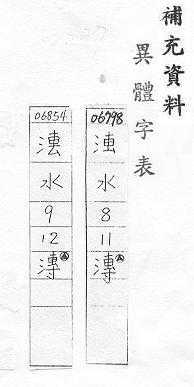 補充資料
異體字表
06798
水
8
11
漙
06854
水
9
12
漙